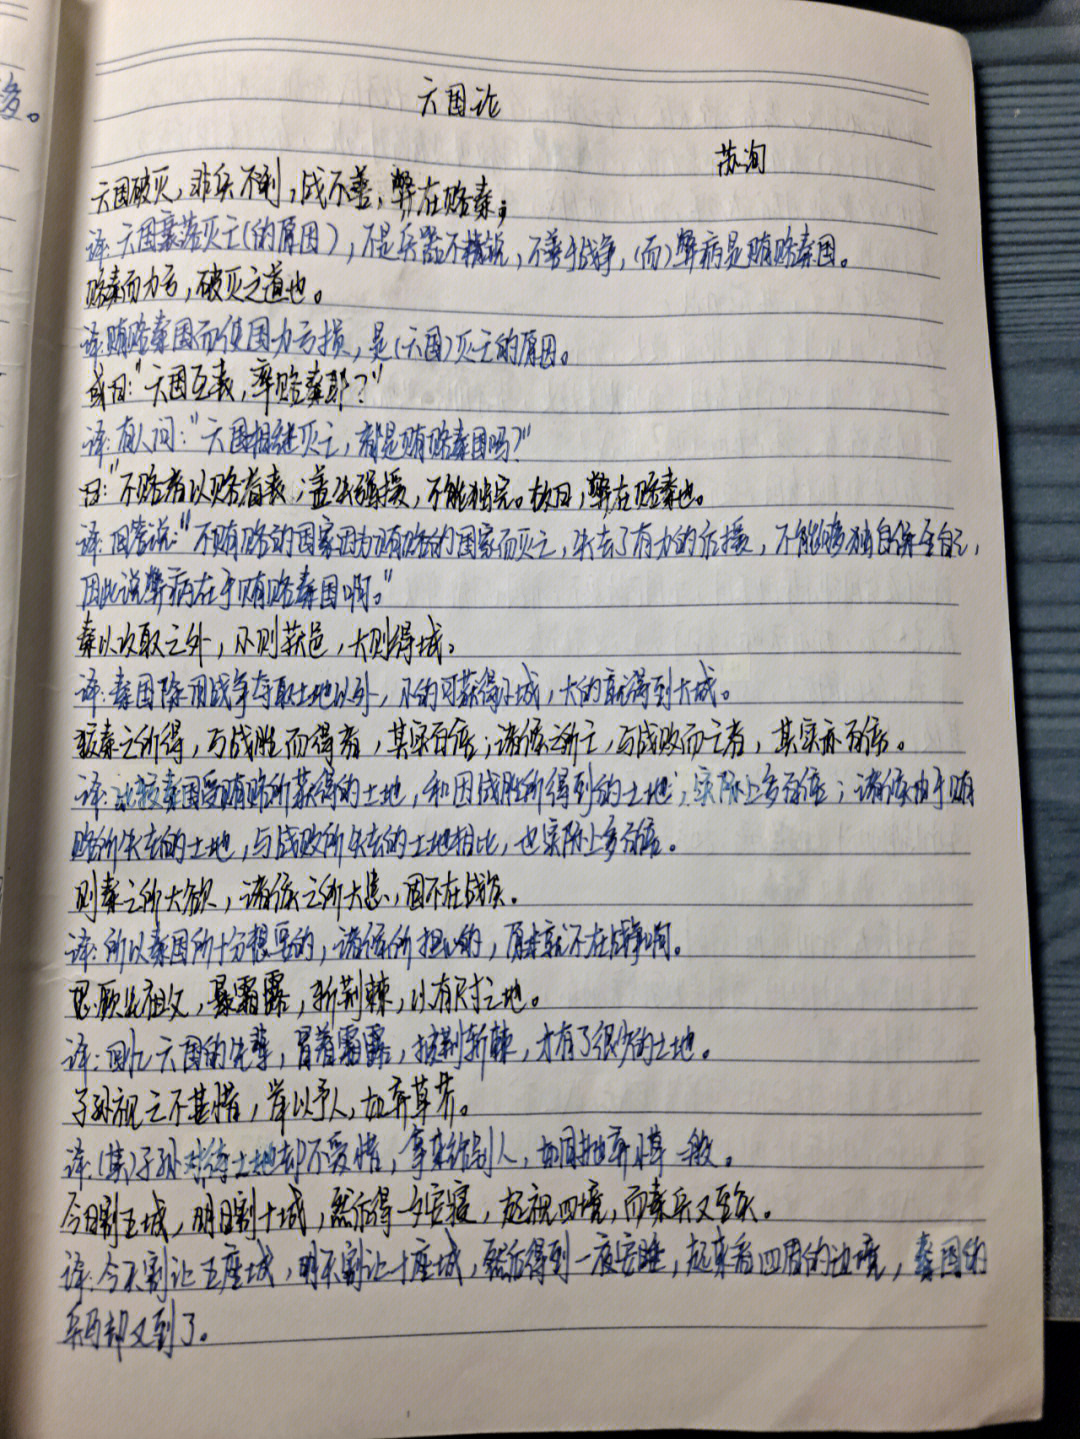 多。
六国论
苏洵
六国破灭,非兵不利,战不善,弊在赂秦;
译:六国衰落灭亡(的原因),不是兵器不精锐,不善于战争,(而)弊病是贿赂秦国。
赂秦而力亏,破灭之道也。
译:贿赂秦国而使国力亏损,是(六国)灭亡的原因。
或曰:“六国互丧,率赂秦耶?”
译:有人问:“六国相继灭亡,都是贿赂秦国吗?”
曰:“不赂者以赂者丧,盖失强援,不能独完。故曰,弊在赂秦也。
译:回答说:“不贿赂的国家因为贿赂的国家而灭亡,失去了有力的后援,不能够独自保全自己,
因此说弊病在于贿赂秦国啊。”
秦以攻取之外,小则获邑,大则得城。
译:秦国除用战争夺取土地以外,小的可获得小城,大的就得到大城。
较秦之所得,与战胜而得者,其实百倍;诸侯之所亡,与战败而亡者,其实亦百倍。
译:比较秦国受贿赂所获得的土地,和因战胜所得到的土地,实际上多百倍;诸侯由于贿
赂所失去的土地,与战败所失去的土地相比,也实际上多百倍。
则秦之所大欲,诸侯之所大患,固不在战矣。
译:所以秦国所十分想要的,诸侯所担心的,原来就不在战争啊。
思厥先祖父,暴霜露,斩荆棘,以有尺寸之地。
译:回忆六国的先辈,冒着霜露,披荆斩棘,才有了很少的土地。
子孙视之不甚惜,举以予人,如弃草芥。
译:(其)子孙对待土地却不爱惜,拿来给别人,如同抛弃小草一般。
今日割五城,明日割十城,然后得一夕安寝,起视四境,而秦兵又至矣。
译:今天割让五座城,明天割让十座城,然后得到一夜安睡,起来看四周的边境,秦国的
兵马却又到了。